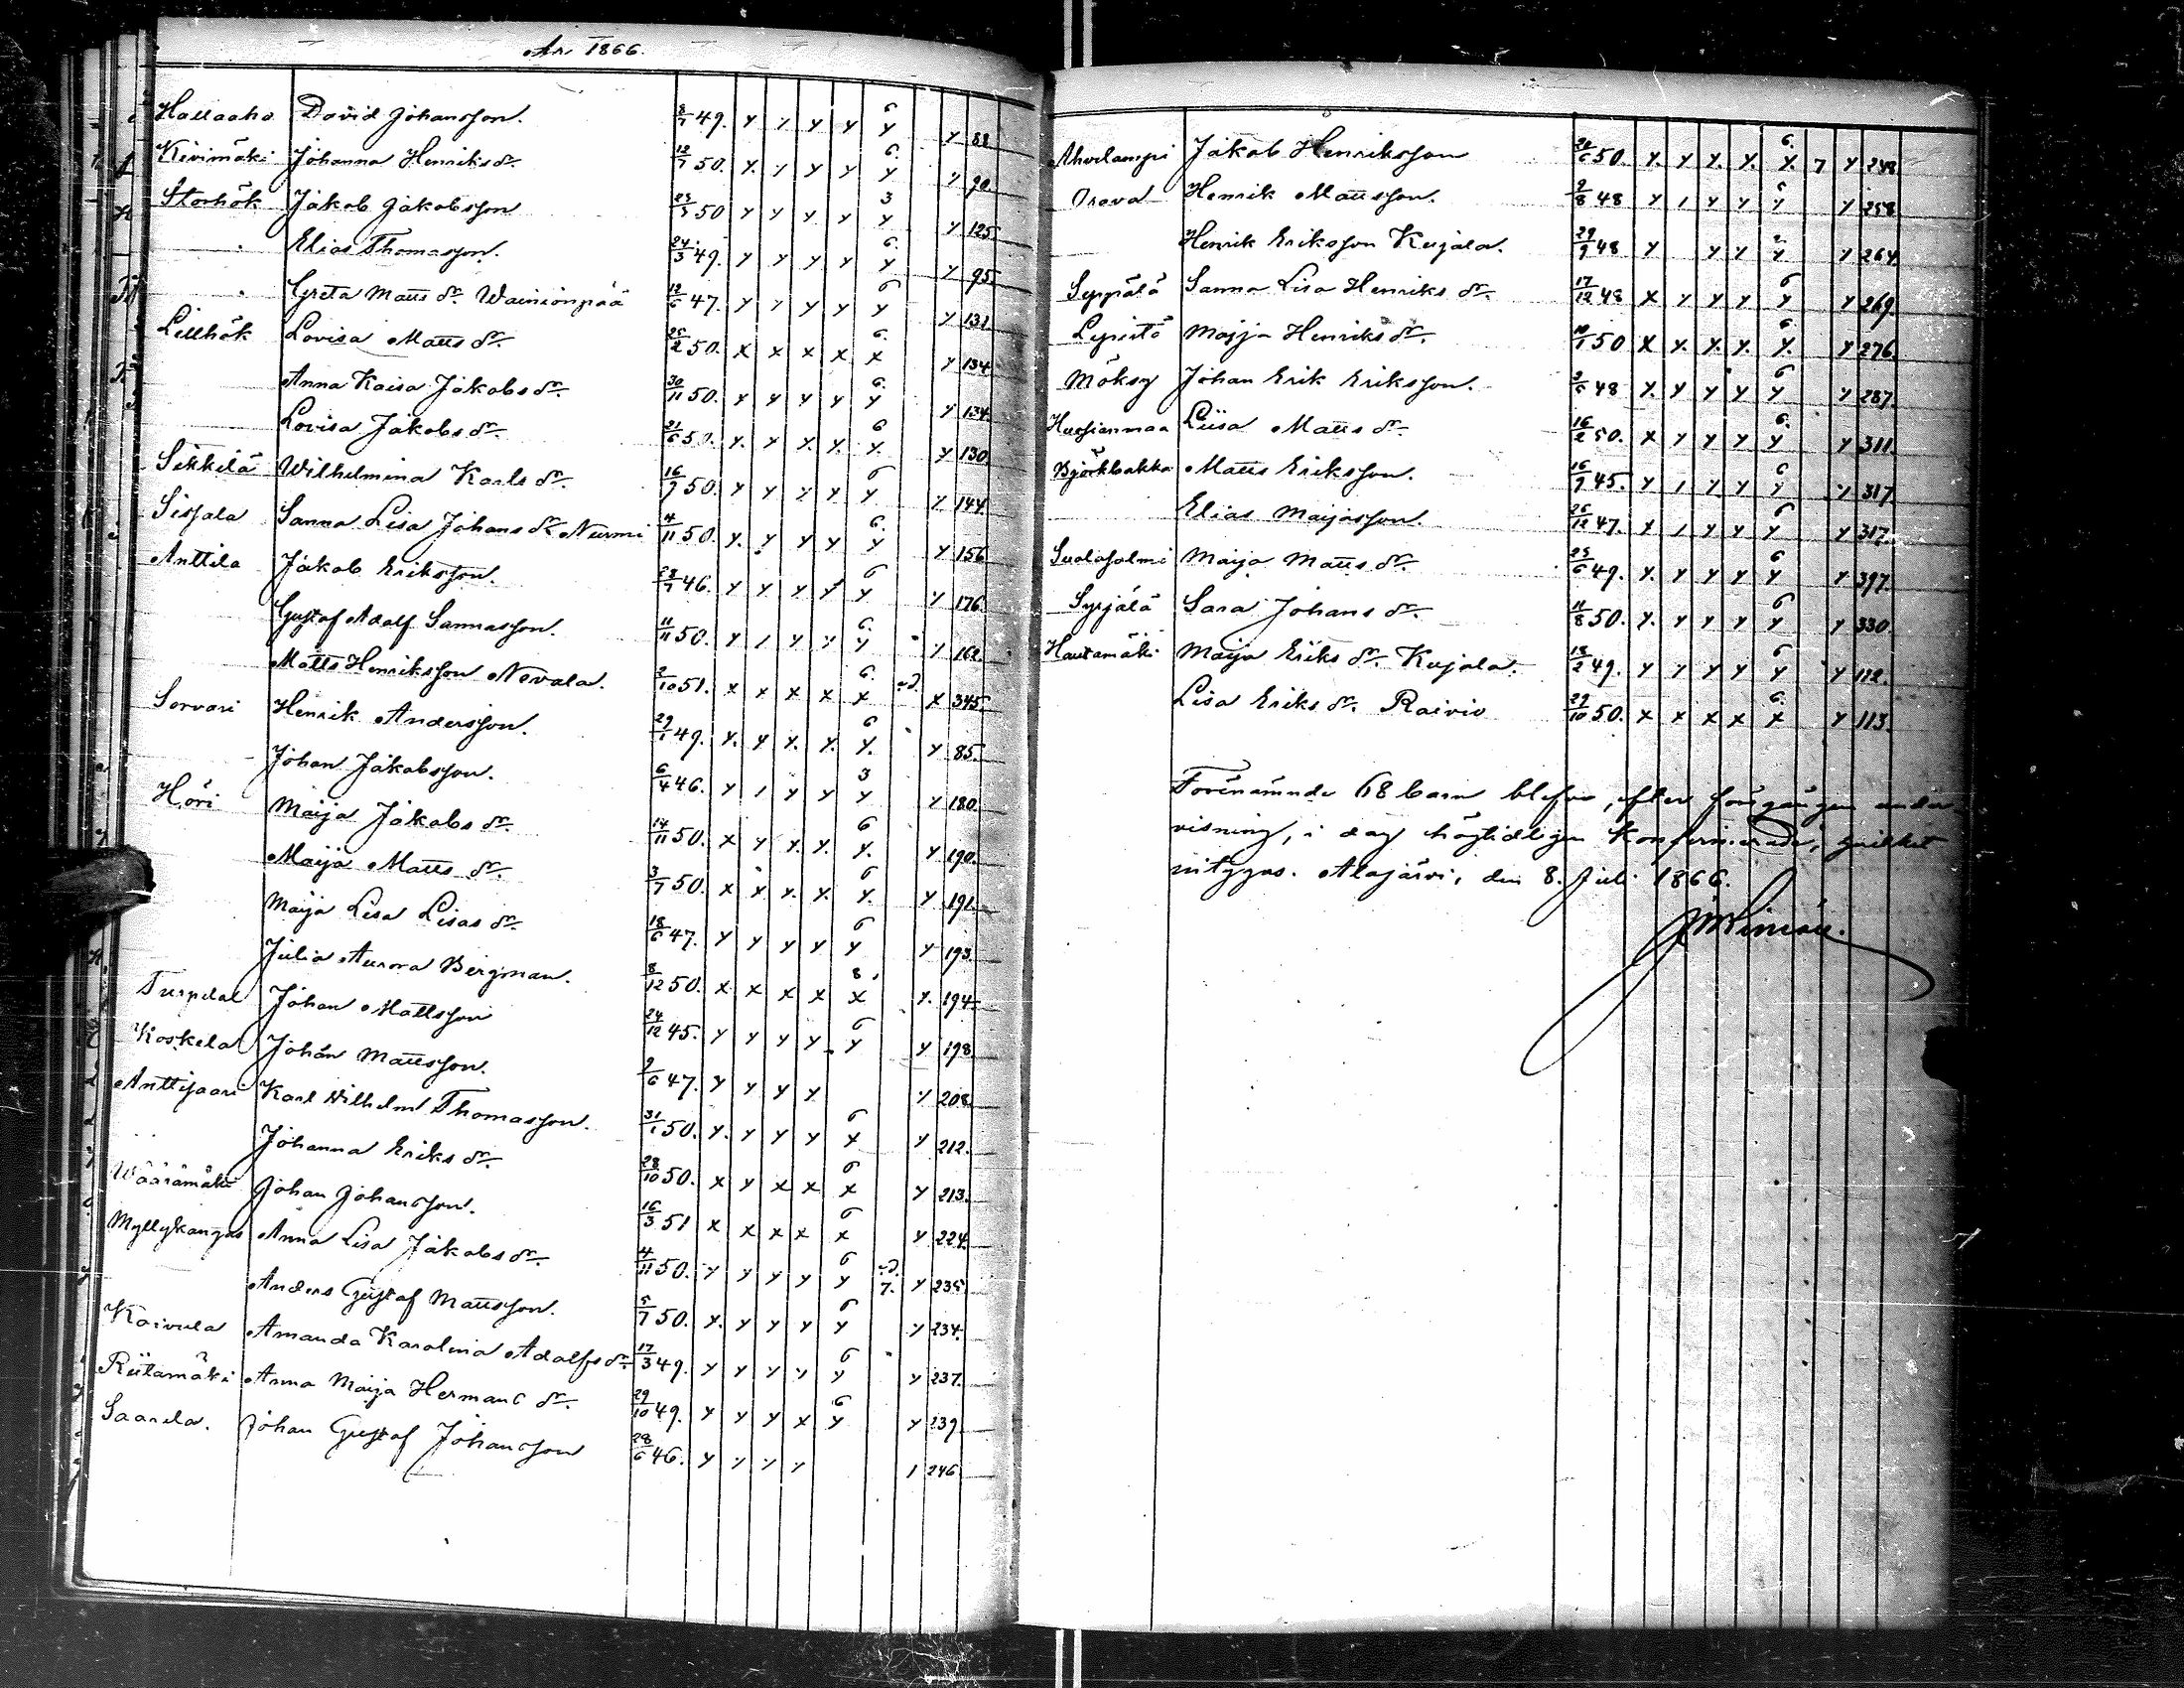 År 1866.
Hallaaho David Johansson. 8/7 49. y y y y 6 y y 88
Kivimäki Johanna Henriks dr. 12/7 50. y. y y y 6. y y 90
Storhök Jakob Jakobsson 23/3 50 y y y y 3 y y 125
" Elias Thomasson. 24/3 49. y y y y 6. y y 95
" Greta Matts dr. Wainionpää 12/6 47. y y y y 6 y y 131
Lillhök Lovisa Matts dr. 25/2 50. x x x x 6. x y 134
Anna Kaisa Jakobs dr. 30/11 50. y y y y 6. y y 134
Lovisa Jakobs dr. 21/6 50. y. y y. y. 6 y. y 130
Sikkilä Wilhelmina Karls dr. 16/7 50. y y y y 6 y y 144
Sissala Sanna Lisa Johans dr. Nurmi 4/11 50. y. y y y 6. y y 156
Anttila Jakob Eriksson. 23/7 46. y y y y 6 y y 176
Gustaf Adolf Sannasson. 11/11 50. y 1 y y 6. y y 162
Matts Henriksson Nevala. 2/10 51. x x x x 6. x x 345
Sorvari Henrik Andersson. 29/1 49. y. y y. y. 6 y. y 85.
Johan Jakobsson. 6/4 46. y 1 y y 3 y y 180
Höri Maija Jakobs dr. 14/11 50. x y y. y. 6 y. y 190.
Maija Matts dr. 3/7 50. x x x. x 6 y. y 191.
Maija Lisa Lisas dr. 18/6 47. y y y y 6 y y 193
Julia Aurora Bergman. 8/12 50. x x x x 8 x y. 194
Turpela Johan Mattsson 24/12 45. y y y y 6 y y 198
Koskela Johan Mattsson. 9/6 47. y y y y y 208
Anttisaari Karl Wilhelm Thomasson. 31/1 50. y. y y y 6 x y 212.
Johanna Eriks dr. 28/10 50. x y x x 6 x y 213.
Wäärämäki Johan Johansson. 16/3 51 x x x x 6 x y 224
Myllykangas Anna Lisa Jakobs dr. 4/11 50. y y y y 6 y 7. y 235
Anders Gustaf Mattsson. 5/7 50. y. y y y 6 y y 234.
Koivula Amanda Karolina Adolfs dr. 17/3 49. y y y y 6 y y 237.
Riitamäki Anna Maija Hermans dr. 29/10 49. y y y x 6 y y 239
Saarela. Johan Gustaf Johansson 28/6 46. y y y y 1 246
Ahvelampi Jakob Henriksson 26/6 50. y. y y. y. 6. y. 7 y 248
Orava Henrik Mattsson. 9/8 48 y 1 y y 6 y y 258
Henrik Eriksson Kujala. 29/9 48 y y y y y 264.
Seppälä Sanna Lisa Henriks dr. 17/12 48 x y y y 6 y y 269.
Lepistö Maija Henriks dr. 10/1 50 x y. y. y. 6. y. y 276.
Möksy Johan Erik Eriksson. 3/6 48 y. y y y 6 y y 287.
Liisa Matts dr. 16/2 50. x y y y 6. y y 311.
Björkbakka Matts Eriksson. 16/9 45. y 1 y y 6 y y 317
Elias Maijasson. 26/12 47. x 1 y y 6 y y 317.
Maija Matts dr. 25/6 49. y. y y y 6 y y 397
Syrjälä Sara Johans dr. 11/8 50. y. y y y 6 y y 330.
Hautamäki Maija Eriks dr. Kujala. 18/2 49. y y y y 6 y y 112.
Lisa Eriks dr. Raivio 29/10 50. x x x x 6. x y 113.
Förenämnde 68 barn blefvo, efter föregången under
visning, i dag högtidligen konfirmerade, hvilket
intygas. Alajärvi, den 8. Juli 1866.